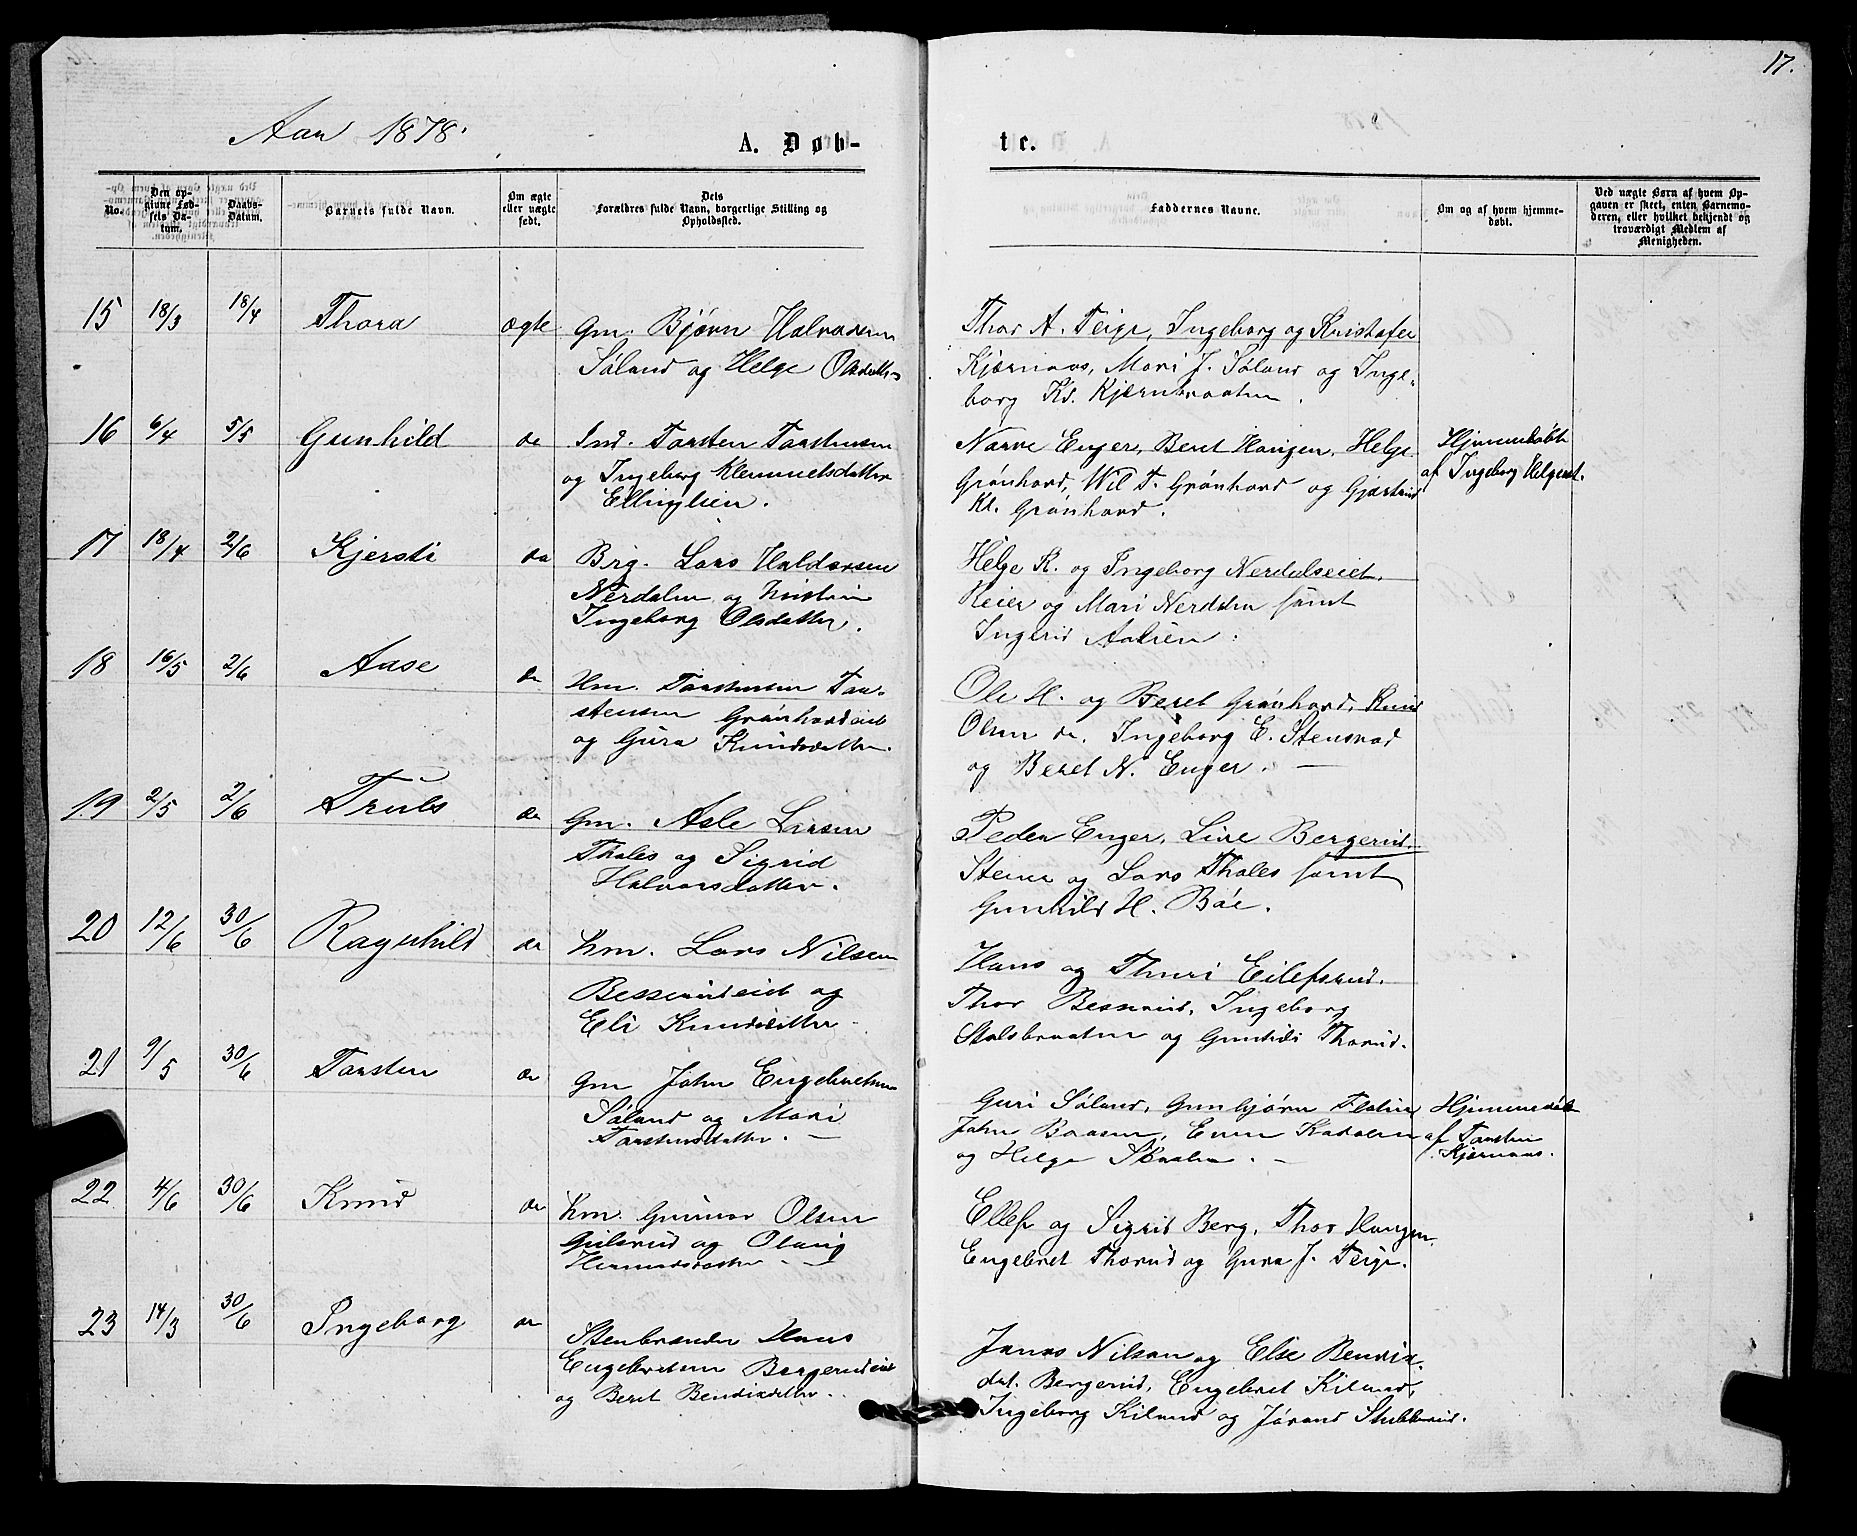 17.
Aar 1878.
A. Døb-
te.
No.
Den op-
givne Fød-
sels Da-
tum.
Daabs-
Datum.
Barnets fulde Navn.
Om ægte
eller uægte
født.
Dels
Forældres fulde Navn, borgerlige Stilling og
Opholdssted.
Faddernes Navne.
Om og af hvem hjemme-
døbt.
Ved uægte Børn af hvem Op-
gaven er skeet, enten Barnemo-
deren, eller hvilket bekjendt og
troværdigt Medlem af
Menigheden.
15 18/3 18/4 Thora ægte Gm. Bjørn Halvorsen
Søland og Helge Olsdatter
Thor A. Teige, Ingeborg og Kristofer
Kjærnaas, Mari J. Søland og Inge-
borg Kr. Kjærnbraaten.
16 6/4 5/5 Gunhild do Ind. Torsten Torstensen
og Ingeborg Klemmetsdatter
Ellinglien.
Narve Enger, Beret Haugen, Helge
Grønhovd, Wil T. Grønhovd og Gjertrud
Kl. Grønhovd.
Hjemmedøbt
af Ingeborg Helgesd.
17 18/4 2/6 Kjersti do Brg. Lars Haldorsen
Nerdalen og hustru
Ingeborg Olsdatter.
Helge K. og Ingeborg Nerdalseiet,
Reier og Mari Nerdalen samt
Ingerid Aalien.
18 16/5 2/6 Aase do Hm. Torstensen Tor-
stensen Grønhovdeiet
og Gura Knudsdatter.
Ole H. og Beret Grønhovd, Knud
Olsen do. Ingeborg E. Stensrud
og Beret N. Enger. —
19 2/5 2/6 Truls do Gm. Asle Larsen
Tholes og Sigrid
Halvorsdatter.
Peder Enger, Line Bergerud.
Steinar og Lars Tholes samt
Gunhild H. Bøe.
20 12/6 30/6 Ragnhild do Hm. Lars Nilsen
Besserudeiet og
Eli Knudsdatter
Hans og Thuri Eilefsrud.
Thor Besserud, Ingeborg
Stalsbraaten og Gunhild Thorud.
21 9/5 30/6 Torsten do Gm John Engebretsen
Søland og Mari
Torstensdatter. —
Guri Søland, Gunbjørn Flatin
John Boasen, Even Kadalen
og Helge Skaalen. —
Hjemmedøbt
af Torsten
Kjærnaas.
22 4/6 30/6 Knud do Hm. Gunnar Olsen
Gulsrud og Olaug
Hermundsdatter. —
Ellef og Sigrid Berg, Thor Haugen.
Engebret Thorud og Gura J. Teige.
23 14/3 30/6 Ingeborg do Stenbrænder Hans
Engebretsen Bergerudeiet
og Beret Bendixdatter.
Jonas Nilsen og Else Bendix-
dat. Bergerud, Engebret Kiland,
Ingeborg Kiland og Jørand Stubberud.